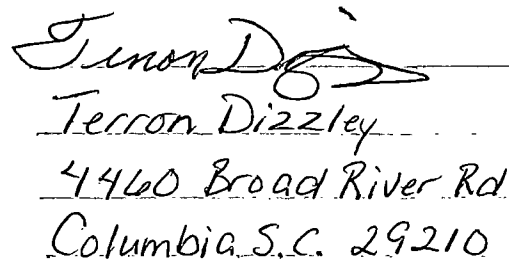 Terron Dizzley
Terron Dizzley
4460 Broad River Rd
Columbia S.C. 29210